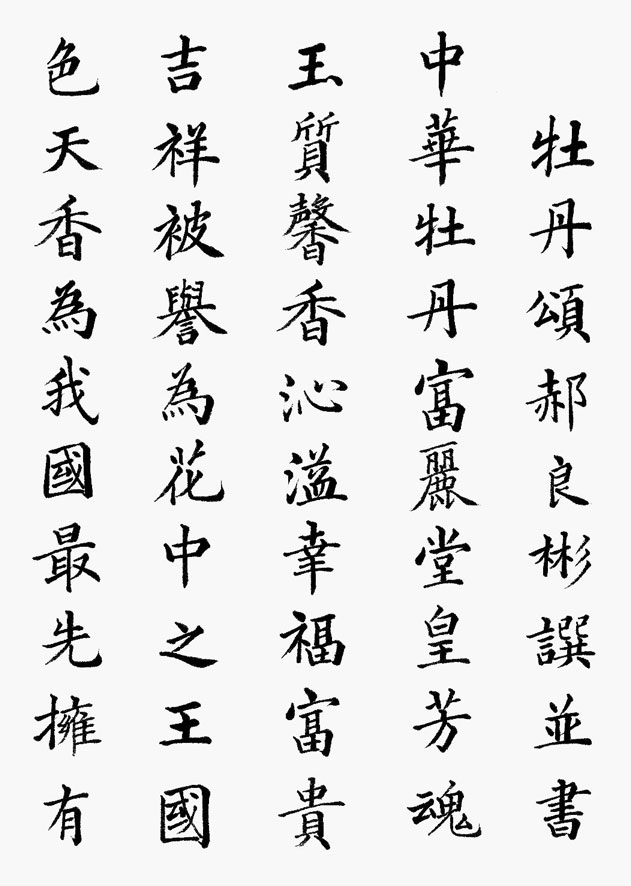 牡丹頌郝良彬譔並書
中華牡丹富麗堂皇芳魂
玉質馨香沁溢幸福富貴
吉祥被譽為花中之王國
色天香為我國最先擁有